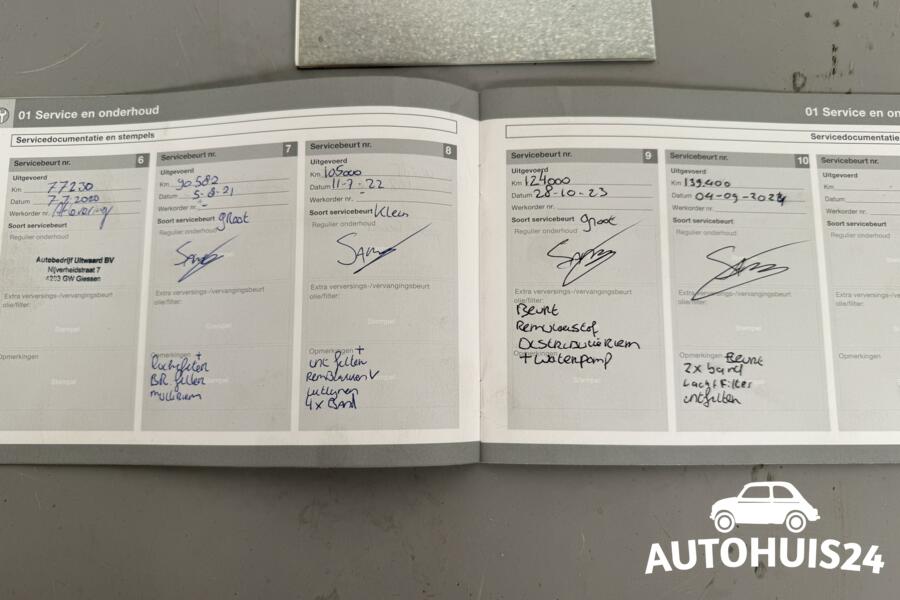 01 Service en onderhoud
Servicedocumentatie en stempels
Servicebeurt nr. 6
Uitgevoerd
Km 77230
Datum 7.7.2020
Werkorder nr. Aflevering
Soort servicebeurt
Autobedrijf Uitwaard BV
Nijverheidstraat 7
4283 GW Giessen
Servicebeurt nr. 7
Uitgevoerd
Km 90582
Datum 5-8-21
Werkorder nr. -
Soort servicebeurt groot
Regulier onderhoud
Extra verversings-/vervangingsbeurt
olie/filter:
Stempel
Opmerkingen +
luchtfilter
BR. filter
multiriem
Servicebeurt nr. 8
Uitgevoerd
Km 105000
Datum 11-7-22
Werkorder nr. -
Soort servicebeurt Klein
Regulier onderhoud
Sam
Extra verversings-/vervangingsbeurt
olie/filter:
Stempel
Opmerkingen +
int filter
Remblokken V
4x Band
01 Service en on
Servicedocumentatie
Servicebeurt nr. 9
Uitgevoerd
Km 124000
Datum 28-10-23
Werkorder nr.
Soort servicebeurt groot
Regulier onderhoud
Extra verversings-/vervangingsbeurt
olie/filter:
Beurt
Remvloeistof
Distributieriem
+ waterpomp
Opmerkingen
Servicebeurt nr. 10
Uitgevoerd
Km 139.400
Datum 04-09-2024
Werkorder nr.
Soort servicebeurt
Regulier onderhoud
Extra verversings-/vervangingsbeurt
olie/filter:
Stempel
Opmerkingen Beurt
2x band
Lucht Filter
intfilter
Servicebeurt
Uitgevoerd
Km
Datum
Werkorder nr.
Soort service
Regulier onderh
Extra verversin
olie/filter:
Opmerkingen
AUTOHUIS24